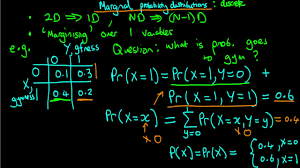 Marginal probability distributions: discrete
• 2D => 1D, ND => (N-1)D
• 'Marginalising' over 1 variable
e.g. Y, fitness Question: what is prob. goes to gym?
0 1
X, gymness
0 0.1 0.3
1 0.4 0.2
Pr(X=1) = Pr(X=1, Y=0) +
Pr(X=1, Y=1) = 0.6
Pr(X=x) = Σ Pr(X=x, Y=y) = 0.4
y=0
0 0
P(X) = Pr(X) = { 0.4, x=0
0.6, x=1